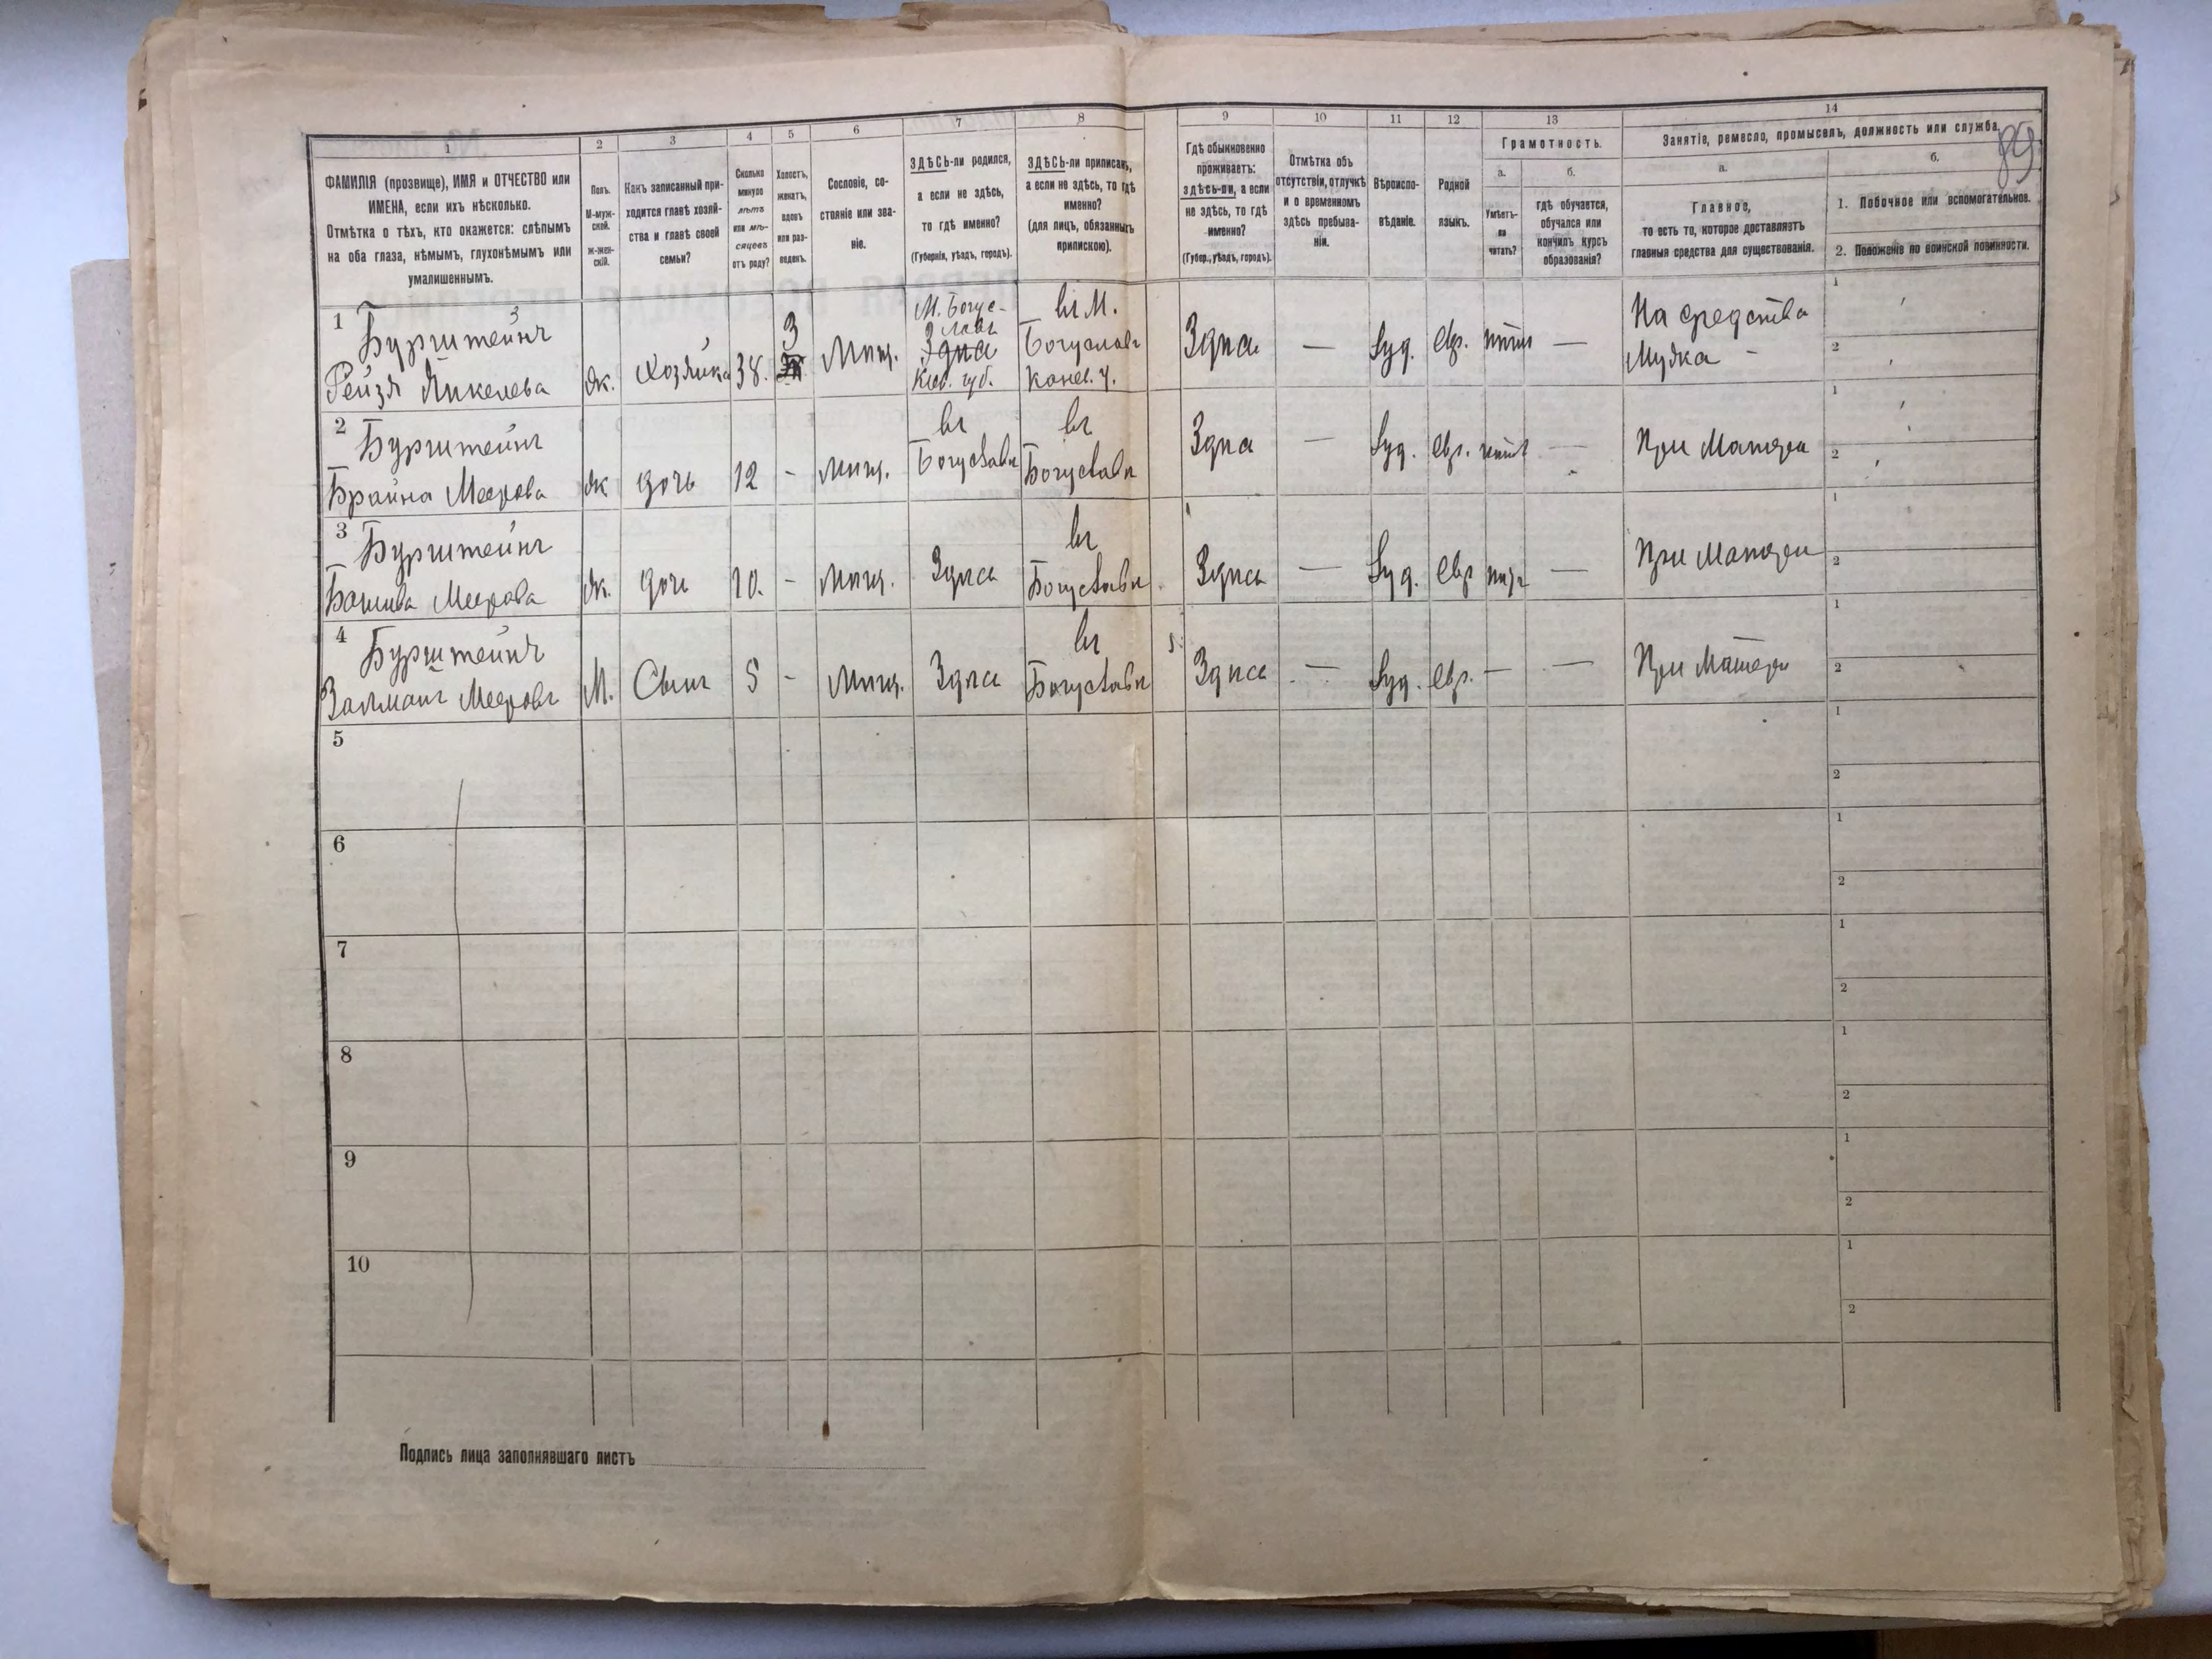 89
1
2
3
4
5
6
7
8
9
10
11
12
13
14
ФАМИЛІЯ (прозвище), ИМЯ и ОТЧЕСТВО или
ИМЕНА, если ихъ нѣсколько.
Отмѣтка о тѣхъ, кто окажется: слѣпымъ
на оба глаза, нѣмымъ, глухонѣмымъ или
умалишеннымъ.
Полъ.
М-муж-
ской.
ж-жен-
скій.
Какъ записанный при-
ходится главѣ хозяй-
ства и главѣ своей
семьи?
Сколько
минуло
лѣтъ
или мѣ-
сяцевъ
отъ роду?
Холостъ,
женатъ,
вдовъ
или раз-
веденъ.
Сословіе, со-
стояніе или зва-
ніе.
ЗДѢСЬ-ли родился,
а если не здѣсь,
то гдѣ именно?
(Губернія, уѣздъ, городъ).
ЗДѢСЬ-ли приписанъ,
а если не здѣсь, то гдѣ
именно?
(для лицъ, обязанныхъ
припискою).
Гдѣ обыкновенно
проживаетъ:
здѣсь-ли, а если
не здѣсь, то гдѣ
именно?
(Губер., уѣздъ, городъ).
Отмѣтка объ
отсутствіи, отлучкѣ
и о временномъ
здѣсь пребыва-
ніи.
Вѣроиспо-
вѣданіе.
Родной
языкъ.
Грамотность.
а.
Умѣетъ-
ли
читать?
б.
гдѣ обучается,
обучался или
кончилъ курсъ
образованія?
Занятіе, ремесло, промыселъ, должность или служба.
а.
Главное,
то есть то, которое доставляетъ
главныя средства для существованія.
б.
1. Побочное или вспомогательное.
2. Положеніе по воинской повинности.
1
Бурштейнъ
Рейзя Янкелева
ж.
Хозяйка
38.
З
Мѣщ.
М. Богус-
лавъ
Здѣсь
Кіев. губ.
въ М.
Богуславъ
Канев. у.
Здѣсь
—
Іуд.
евр.
нѣтъ
—
На средства
Мужа -
1
2
2
Бурштейнъ
Брайна Меерова
ж
дочь
12
-
мѣщ.
въ
Богуславѣ
въ
Богуславѣ
Здѣсь
—
Іуд.
евр.
нѣтъ
—
При Матери
1
2
3
Бурштейнъ
Башива Меерова
ж.
дочь
10.
-
мѣщ.
Здѣсь
въ
Богуславѣ
Здѣсь
—
Іуд.
евр
—
При Матери
1
2
4
Бурштейнъ
Залманъ Мееровъ
М.
Сынъ
5
-
Мѣщ.
Здѣсь
въ
Богуславѣ
Здѣсь
—
Іуд.
евр.
—
—
При Матери
1
2
5
1
2
6
1
2
7
1
2
8
1
2
9
1
2
10
1
2
Подпись лица заполнявшаго листъ